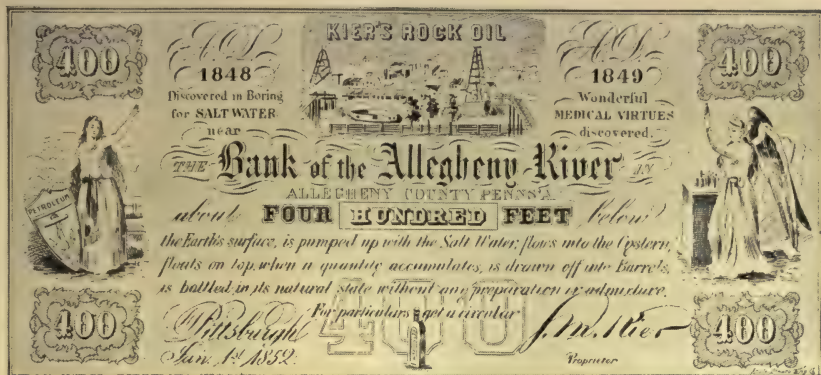 KIER'S ROCK OIL
400
A.D.
1848
Discovered in Boring
for SALT WATER
near
A.D.
1849
Wonderful
MEDICAL VIRTUES
discovered.
400
THE Bank of the Allegheny River IN
ALLEGHENY COUNTY PENNS'A.
PETROLEUM
about FOUR HUNDRED FEET below
the Earth's surface, is pumped up with the Salt Water, flows into the Cystern,
floats on top, when a quantity accumulates, is drawn off into Barrels,
is bottled in its natural state without any preparation or admixture.
For particulars get a circular
400
Pittsburgh
Jan. 1st 1852.
400
S. M. Kier
Proprietor
400